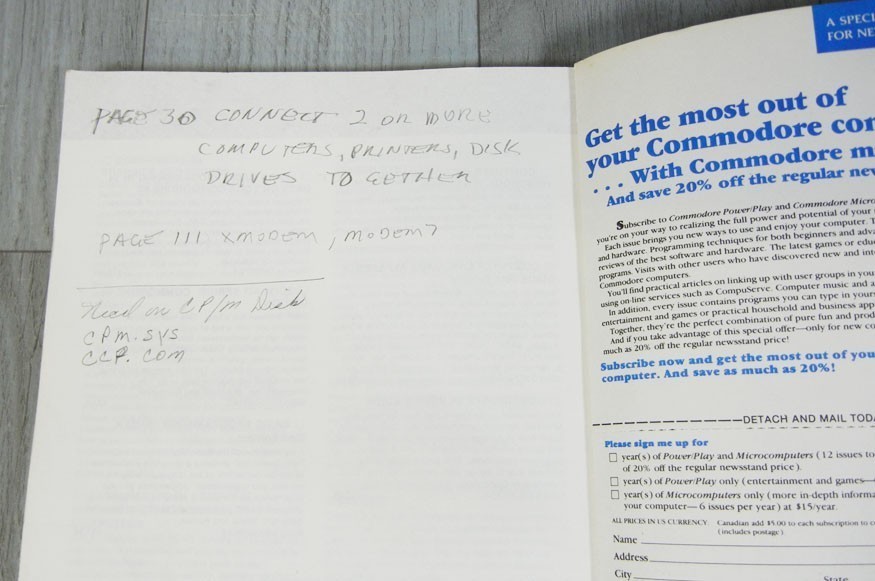 PAGE 30 CONNECT 2 OR MORE
COMPUTERS, PRINTERS, DISK
DRIVES TOGETHER
PAGE 111 XMODEM, MODEM7
Need on CP/M Disk
CPM.SYS
CCP.COM
A SPECI
FOR NE
Get the most out of
your Commodore co
. . . With Commodore m
And save 20% off the regular ne
Subscribe to Commodore Power/Play and Commodore Micro
you're on your way to realizing the full power and potential of your
Each issue brings you new ways to use and enjoy your computer. T
and hardware. Programming techniques for both beginners and adva
reviews of the best software and hardware. The latest games or edu
programs. Visits with other users who have discovered new and int
Commodore computers.
You'll find practical articles on linking up with user groups in you
using on-line services such as CompuServe. Computer music and a
In addition, every issue contains programs you can type in yours
entertainment and games or practical household and business app
Together, they're the perfect combination of pure fun and prod
And if you take advantage of this special offer—only for new co
much as 20% off the regular newsstand price!
Subscribe now and get the most out of you
computer. And save as much as 20%!
DETACH AND MAIL TODA
Please sign me up for
year(s) of Power/Play and Microcomputers (12 issues to
of 20% off the regular newsstand price).
year(s) of Power/Play only (entertainment and games—
year(s) of Microcomputers only (more in-depth informa
your computer—6 issues per year) at $15/year.
ALL PRICES IN US CURRENCY Canadian add $5.00 to each subscription to c
(includes postage)
Name
Address
City State